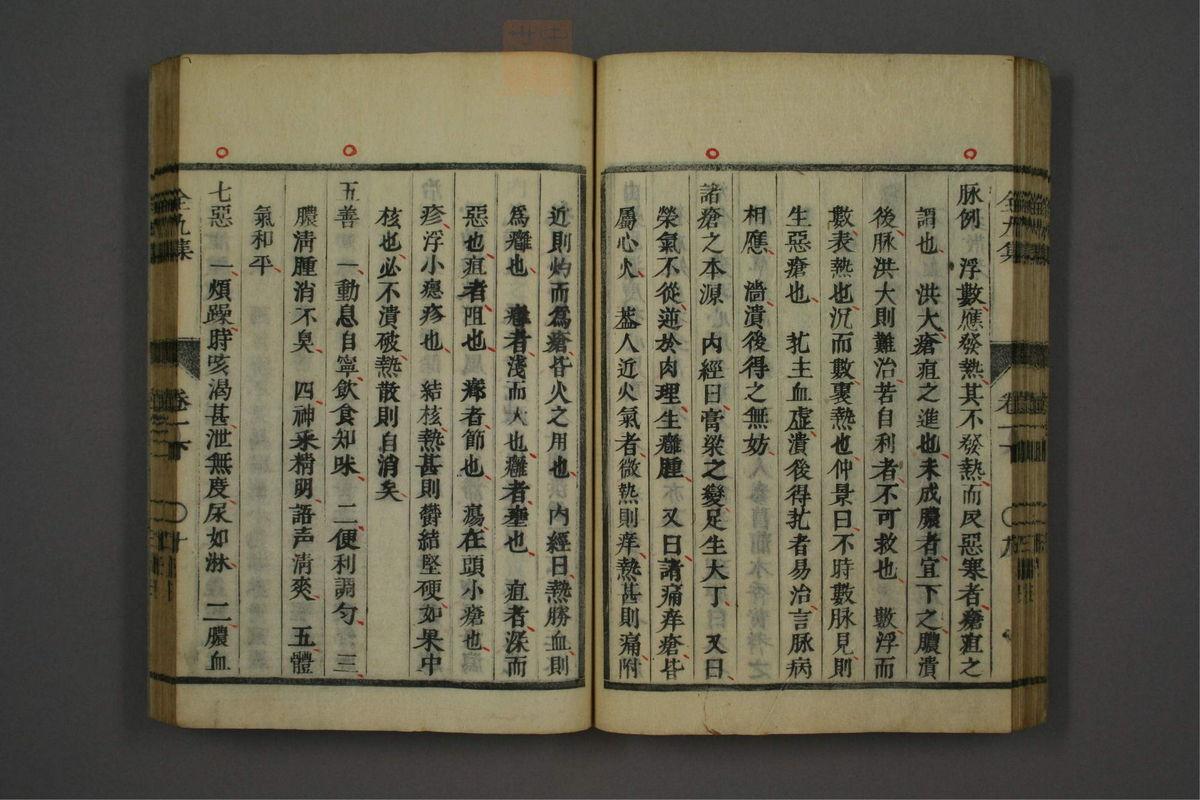 脉例　浮數應發熱其不發熱而反惡寒者瘡疽之
謂也　洪大瘡疽之進也未成膿者宜下之膿潰
後脉洪大則難治若自利者不可救也　數浮而
數表熱也沉而數裏熱也仲景曰不時數脉見則
生惡瘡也　芤主血虛潰後得芤者易治言脉病
相應　濇潰後得之無妨
諸瘡之本源　内經曰膏粱之變足生大丁　又曰
榮氣不從逆於肉理生癰腫　又曰諸痛痒瘡皆
屬心火　盖人近火氣者微熱則痒熱甚則痛附
近則灼而爲瘡皆火之用也　内經曰熱勝血則
爲癰也　癤者淺而大也癰者壅也　疽者深而
惡也疽者阻也　癤者節也　瘍在頭小瘡也
疹浮小癮疹也　結核熱甚則欝結堅硬如果中
核也必不潰破熱散則自消矣
五善　一動息自寧飲食知味　二便利調匀　三
膿淸腫消不臭　四神釆精明語声淸爽　五體
氣和平
七惡　一煩躁時咳渴甚泄無度尿如淋　二膿血
全九集
卷一下
〇九
全九集
卷一下
〇十